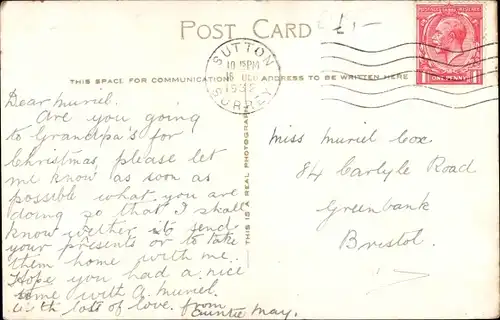 POST CARD
£1-
SUTTON
10 15PM
16 DEC
1932
SURREY
POSTAGE REVENUE
ONE PENNY
THIS SPACE FOR COMMUNICATION
ADDRESS TO BE WRITTEN HERE
THIS IS A REAL PHOTOGRAPH
Dear Muriel.
Are you going
to Grandpa's for
Christmas, please let
me know as soon as
possible what you are
doing so that I shall
know wether to send
your presents or to take
them home with me.
Hope you had a nice
time with A. Muriel.
With lots of love. from
Auntie May.
Miss Muriel Cox
84 Carlyle Road
Greenbank
Bristol.